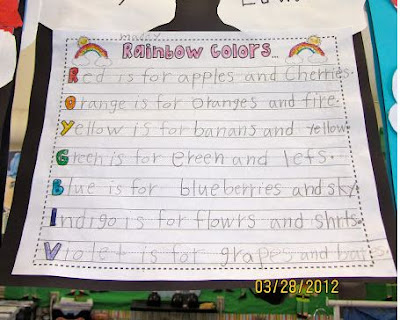 Rainbow Colors...
Red is for apples and Cherries.
Orange is for oranges and fire.
Yellow is for banans and yellow.
Green is for green and lefs.
Blue is for blueberries and sky.
Indigo is for flowrs and shrts.
Violet is for grapes and
03/28/2012